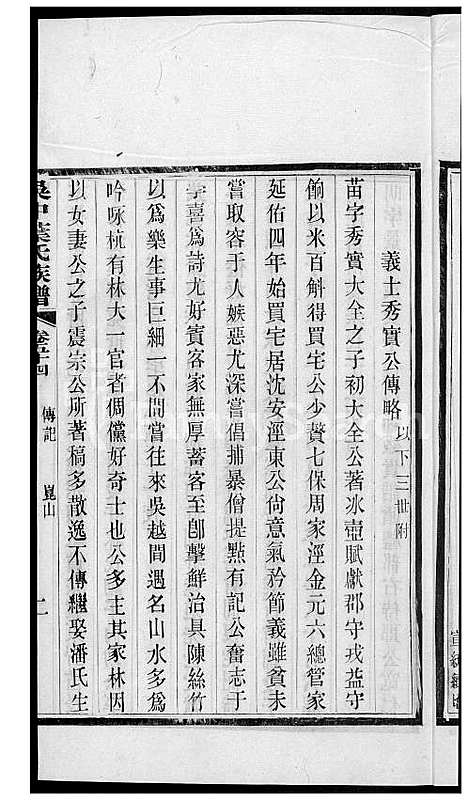 義士秀實公傳略以下三世附
苗字秀實大全之子初大全公著冰壺賦獻郡守戎益守
餉以米百斛得買宅公少贅七保周家涇金元六總管家
延佑四年始買宅居沈安涇東公尙意氣矜節義雖貧未
嘗取容于人嫉惡尤深嘗倡捕暴僧提點有記公奮志于
學喜爲詩尤好賓客家無厚蓄客至卽擊鮮治具陳絲竹
以爲樂生事巨細一不問嘗往來吳越間遇名山水多爲
吟咏杭有林大一官者倜儻好奇士也公多主其家林因
以女妻公之子震宗公所著稿多散逸不傳繼娶潘氏生
吳中葉氏族譜 卷五十四 傳記 崑山